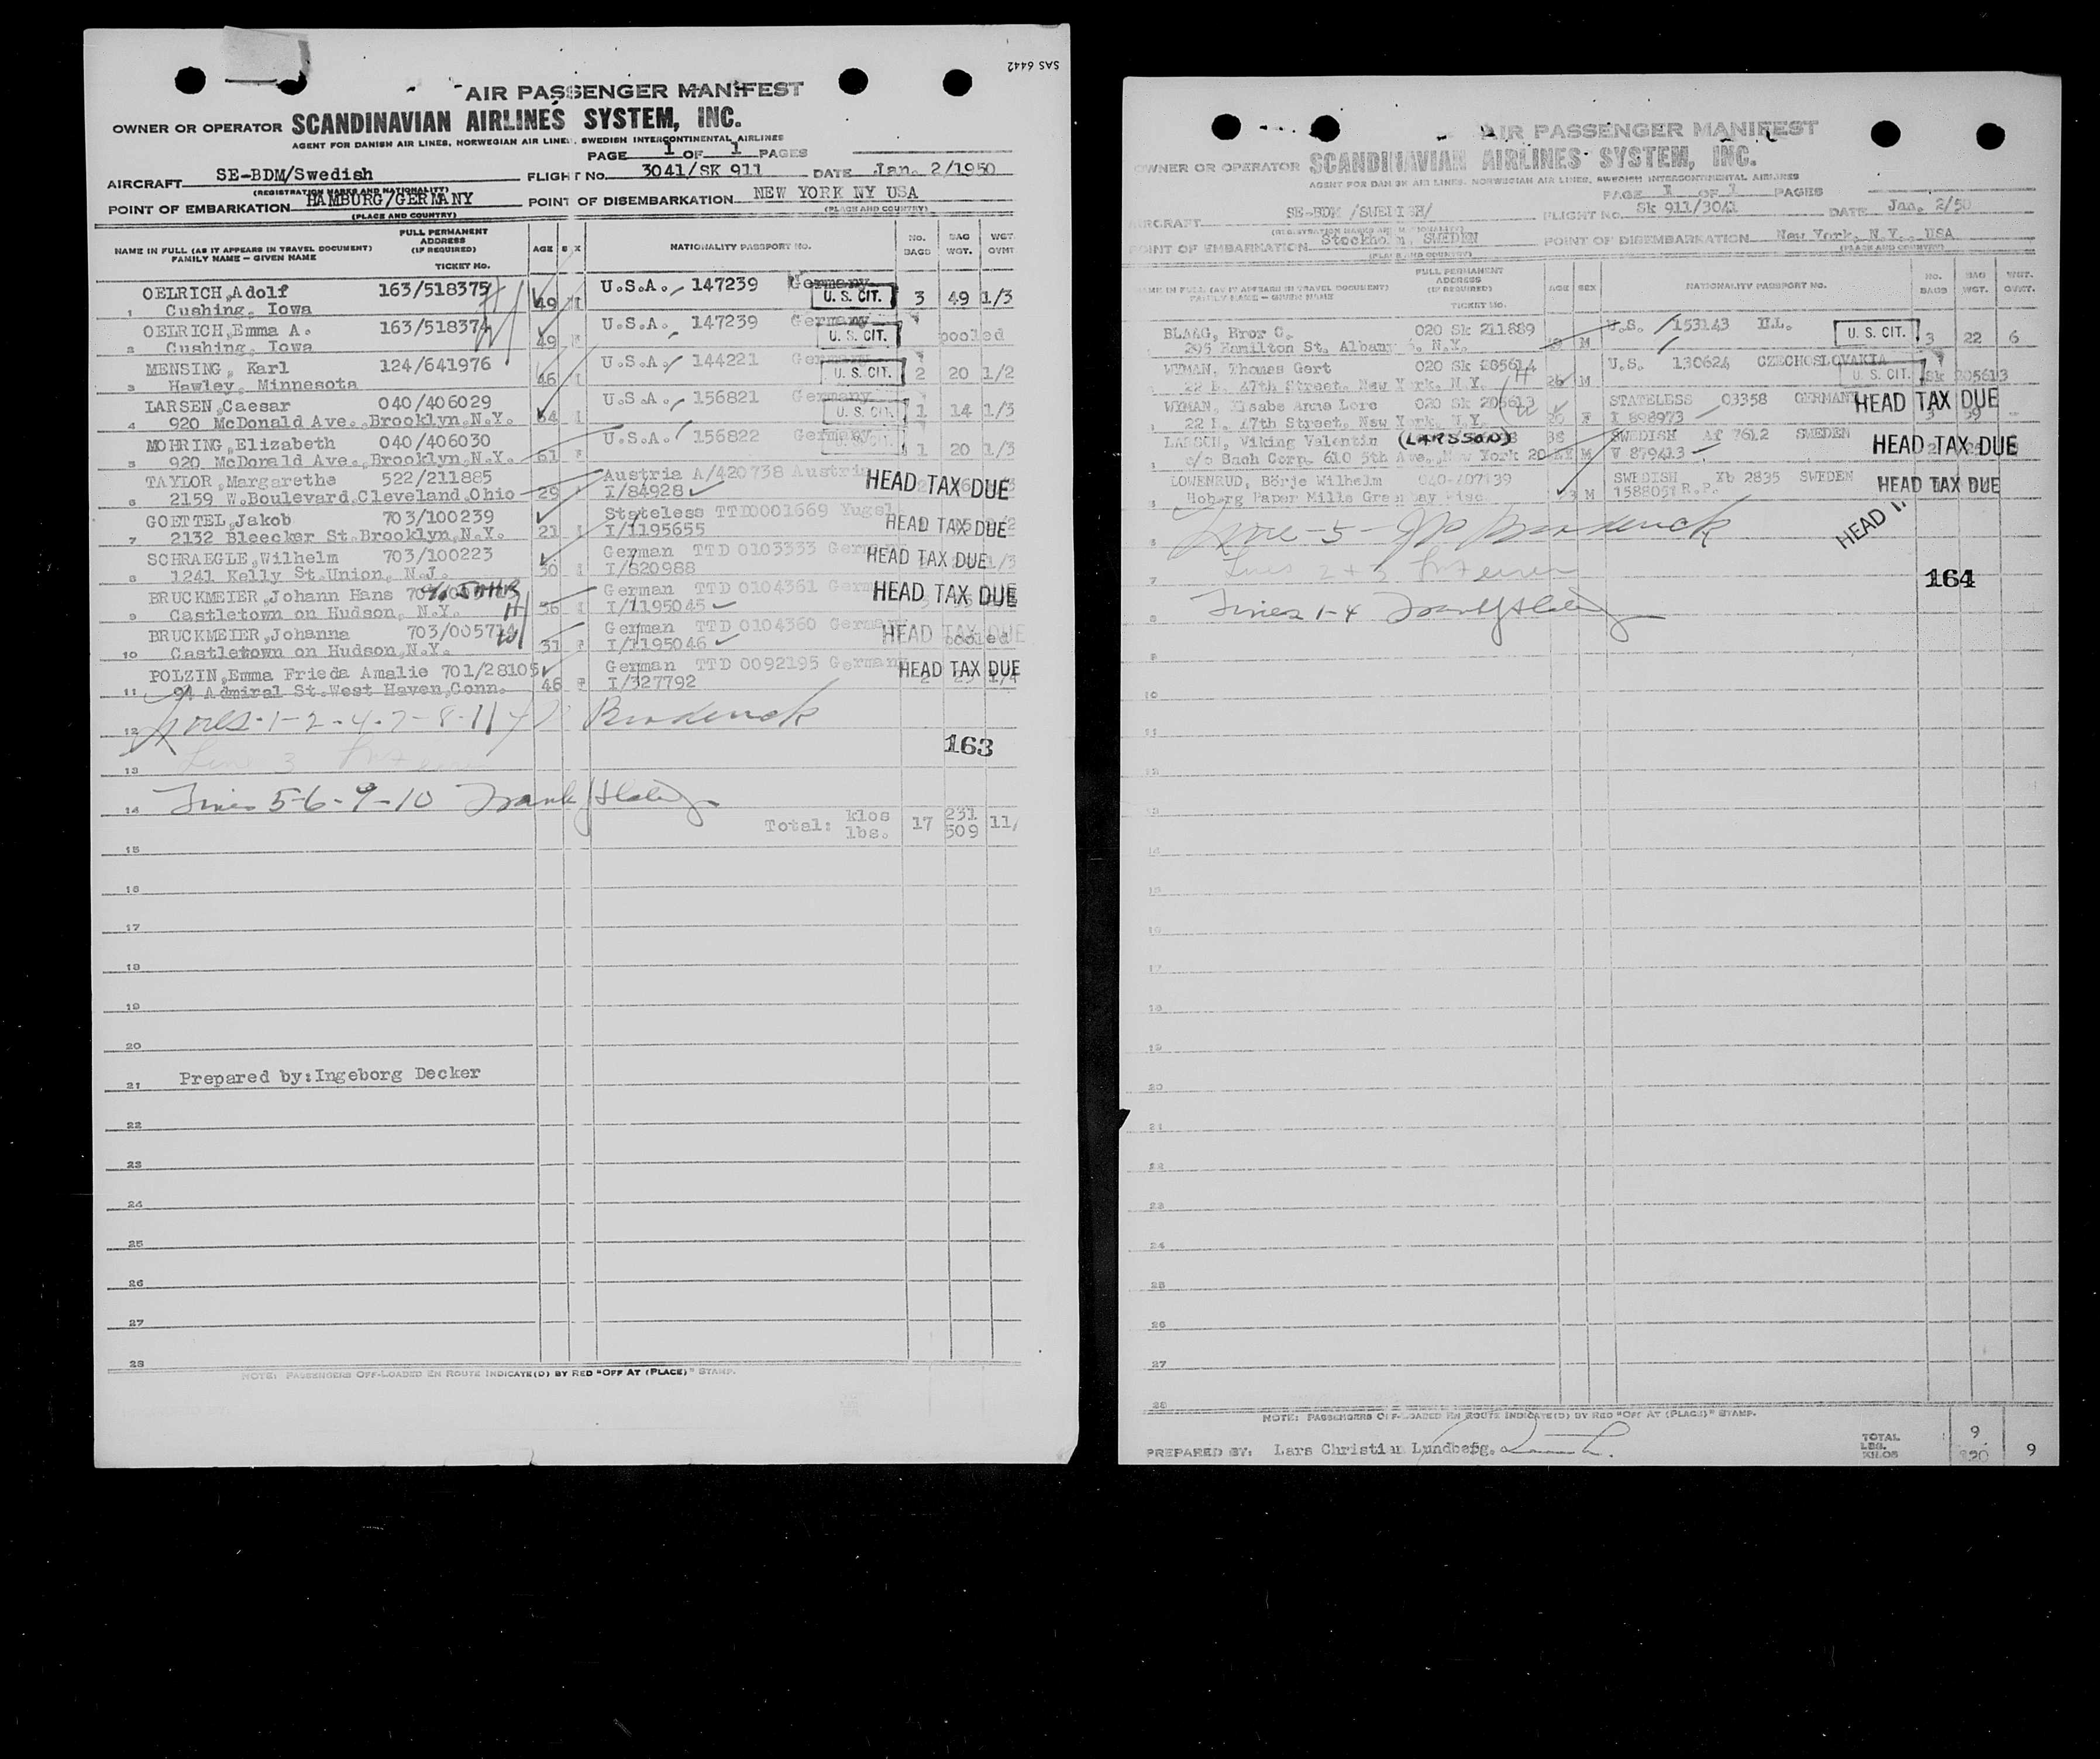 SAS 6442
AIR PASSENGER MANIFEST
OWNER OR OPERATOR SCANDINAVIAN AIRLINES SYSTEM, INC.
AGENT FOR DANISH AIR LINES, NORWEGIAN AIR LINES, SWEDISH INTERCONTINENTAL AIRLINES
PAGE 1 OF 1 PAGES
AIRCRAFT SE-BDM/Swedish FLIGHT No. 3041/SK 911 DATE Jan. 2/1950
(REGISTRATION MARKS AND NATIONALITY)
POINT OF EMBARKATION HAMBURG/GERMANY POINT OF DISEMBARKATION NEW YORK NY USA
(PLACE AND COUNTRY) (PLACE AND COUNTRY)
NAME IN FULL (AS IT APPEARS IN TRAVEL DOCUMENT) FAMILY NAME – GIVEN NAME FULL PERMANENT ADDRESS (IF REQUIRED) TICKET No. AGE NATIONALITY PASSPORT NO. No. BAGS BAG WGT. WGT.
OELRICH,Adolf 163/518375 U.S.A. 147239 Germany
1 Cushing, Iowa 49 U. S. CIT. 3 49 1/3
OELRICH,Emma A. 163/518374 U.S.A. 147239 Germany
2 Cushing, Iowa 49 U. S. CIT. pooled
MENSING, Karl 124/641976 U.S.A. 144221 Germany
3 Hawley, Minnesota 46 U. S. CIT. 2 20 1/2
LARSEN,Caesar 040/406029 U.S.A. 156821 Germany
4 920 McDonald Ave.,Brooklyn,N.Y. 64 U. S. CIT. 1 14 1/3
MOHRING,Elizabeth 040/406030 U.S.A. 156822 Germany
5 920 McDonald Ave.,Brooklyn,N.Y. 61 U. S. CIT. 1 20 1/3
TAYLOR,Margarethe 522/211885 Austria A/420738 Austria
6 2159 W.Boulevard,Cleveland,Ohio 29 I/84928 HEAD TAX DUE
GOETTEL,Jakob 703/100239 Stateless TTD0001669 Yugosl
7 2132 Bleecker St.Brooklyn,N.Y. 21 I/1195655 HEAD TAX DUE
SCHRAEGLE,Wilhelm 703/100223 German TTD 0103333
8 1241 Kelly St.Union, N.J. 30 I/820988 HEAD TAX DUE 1/3
BRUCKMEIER,Johann Hans German TTD 0104361
9 Castletown on Hudson, N.Y. 36 I/1195045 HEAD TAX DUE
BRUCKMEIER,Johanna 703/005714 German TTD 0104360 Germany
10 Castletown on Hudson,N.Y. 31 I/1195046 HEAD TAX DUE pooled
POLZIN,Emma Frieda Amalie 701/28105 German TTD 0092195 German
11 94 Admiral St.West Haven,Conn. 46 I/327792 HEAD TAX DUE
12 Lines-1-2-4-7-8-11 Broderick
163
13 Line 3
14 Lines 5-6-9-10
Total: klos 17 231 11/
lbs. 509
15
16
17
18
19
20
21 Prepared by:Ingeborg Decker
22
23
24
25
26
27
28
NOTE: PASSENGERS OFF-LOADED EN ROUTE INDICATE(D) BY RED "OFF AT (PLACE)" STAMP.
AIR PASSENGER MANIFEST
OWNER OR OPERATOR SCANDINAVIAN AIRLINES SYSTEM, INC.
AGENT FOR DANISH AIR LINES, NORWEGIAN AIR LINES, SWEDISH INTERCONTINENTAL AIRLINES
PAGE 1 OF 1 PAGES
AIRCRAFT SE-BDM /SWEDISH/ FLIGHT No. Sk 911/3041 DATE Jan. 2/50
(REGISTRATION MARKS AND NATIONALITY)
POINT OF EMBARKATION Stockholm, SWEDEN POINT OF DISEMBARKATION New York, N.Y., USA
(PLACE AND COUNTRY) (PLACE AND COUNTRY)
NAME IN FULL (AS IT APPEARS IN TRAVEL DOCUMENT) FAMILY NAME – GIVEN NAME FULL PERMANENT ADDRESS (IF REQUIRED) TICKET NO. AGE SEX NATIONALITY PASSPORT NO. No. BAGS BAG WGT. WGT. OVMT.
BLAAG, Bror C. 020 Sk 211889 U.S. 153143 Ill.
295 Hamilton St. Albany N.Y. M U. S. CIT. 3 22 6
WYMAN, Thomas Gert 020 Sk 205614 U.S. 130624 CZECHOSLOVAKIA
22 E. 47th Street, New York, N.Y. M U. S. CIT. Sk 205613
WYMAN, Elsabe Anna Lore 020 Sk 205613 STATELESS 03358 GERMANY
22 E. 47th Street, New York, N.Y. F I 898973 HEAD TAX DUE
Viking Valentin (LARSSON) SWEDISH Af 7612 SWEDEN
c/o Bach Corp. 610 5th Ave., New York 20 M V 879413 HEAD TAX DUE
LOWENRUD, Börje Wilhelm SWEDISH Xb 2835 SWEDEN
Hoberg Paper Mills Green bay Wisc. M 1588051 R.P. HEAD TAX DUE
Line-5- Broderick
HEAD
Lines 2+3
164
Lines 1-4
8
9
10
11
12
13
14
15
16
17
18
19
20
21
22
23
24
25
26
27
28
NOTE: PASSENGERS OFF-LOADED EN ROUTE INDICATE(D) BY RED "OFF AT (PLACE)" STAMP.
PREPARED BY: Lars Christian Lundberg. TOTAL LBS. KILOS 9 9